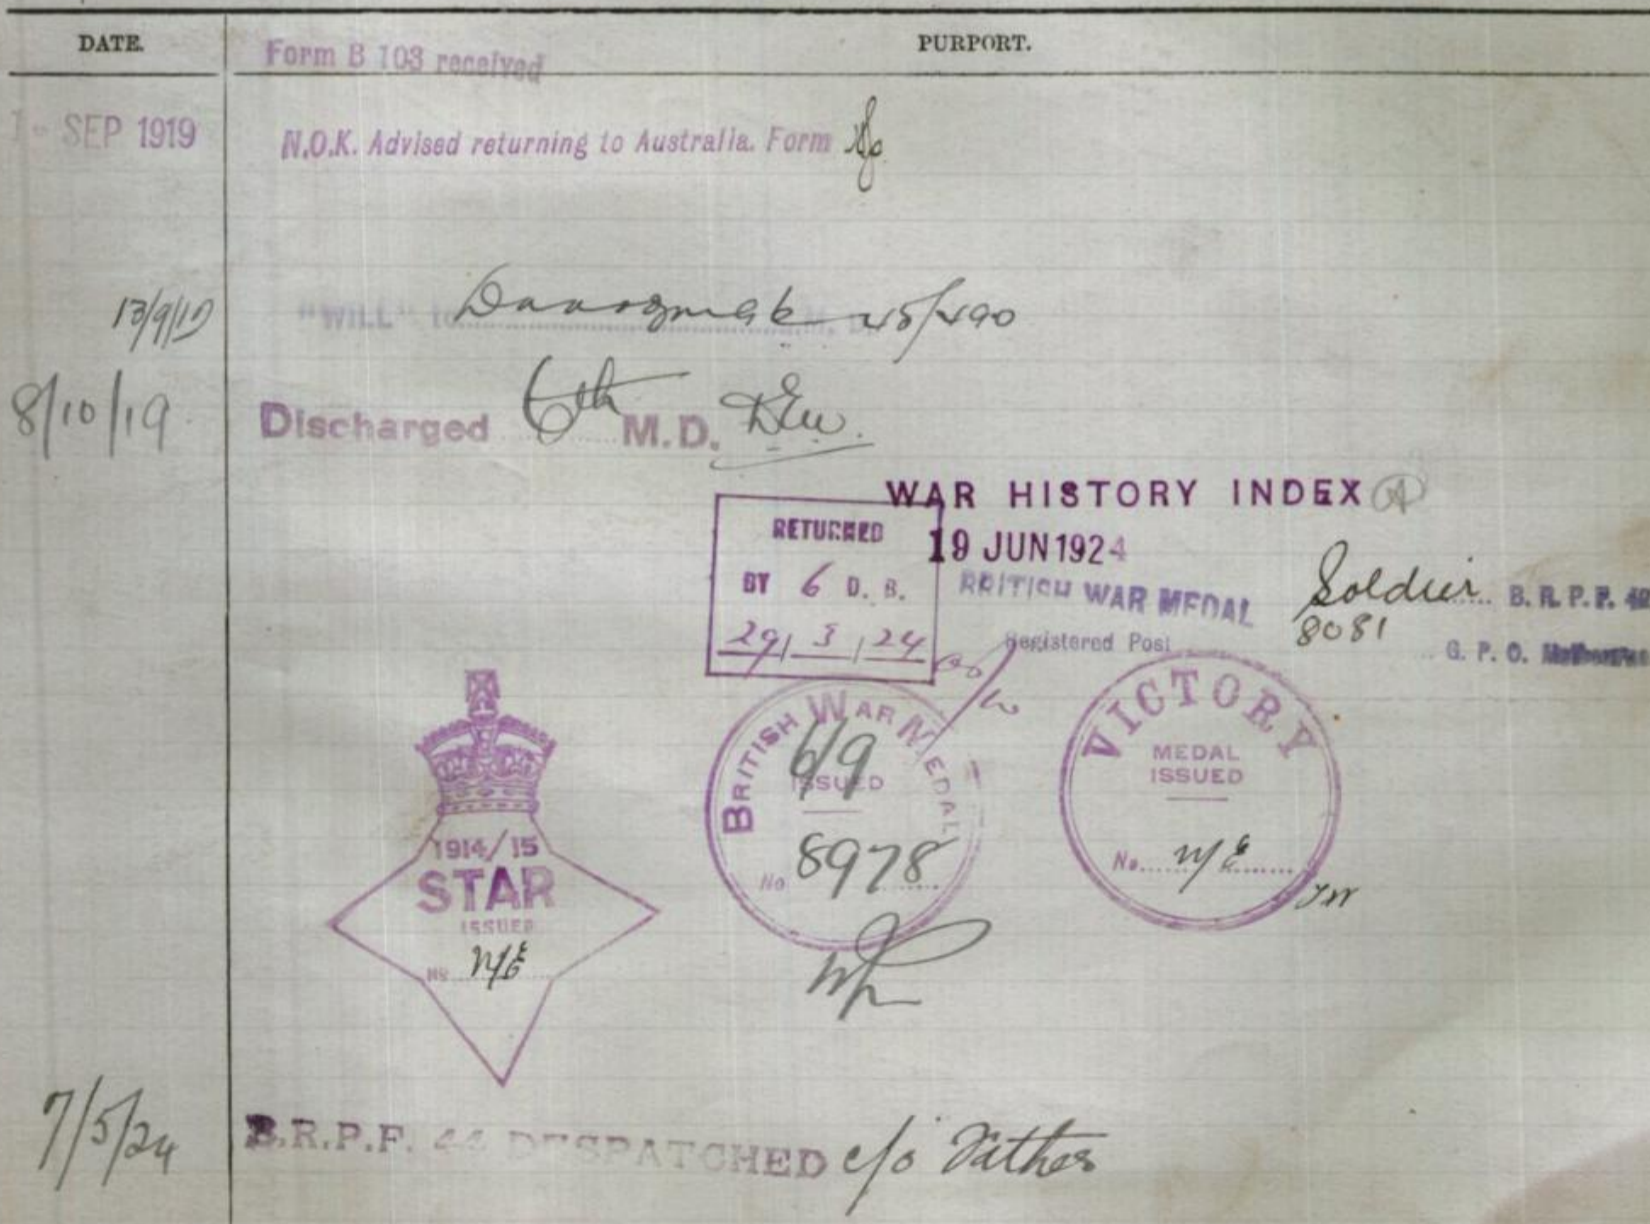 DATE. PURPORT.
Form B 103 received
SEP 1919 N.O.K. Advised returning to Australia. Form
13/9/19 "WILL" to
8/10/19 Discharged 6th M.D.
WAR HISTORY INDEX A
19 JUN 1924
RETURNED
BY 6 D. B.
29/3/24
BRITISH WAR MEDAL Soldier B. R. P. F.
Registered Post 8081 G. P. O. Melbourne
1914/15
STAR
ISSUED
No N/E
BRITISH WAR MEDAL
6/9
ISSUED
No 8978
VICTORY
MEDAL
ISSUED
No. N/E
7/5/24 B.R.P.F. 44 DESPATCHED c/o Father